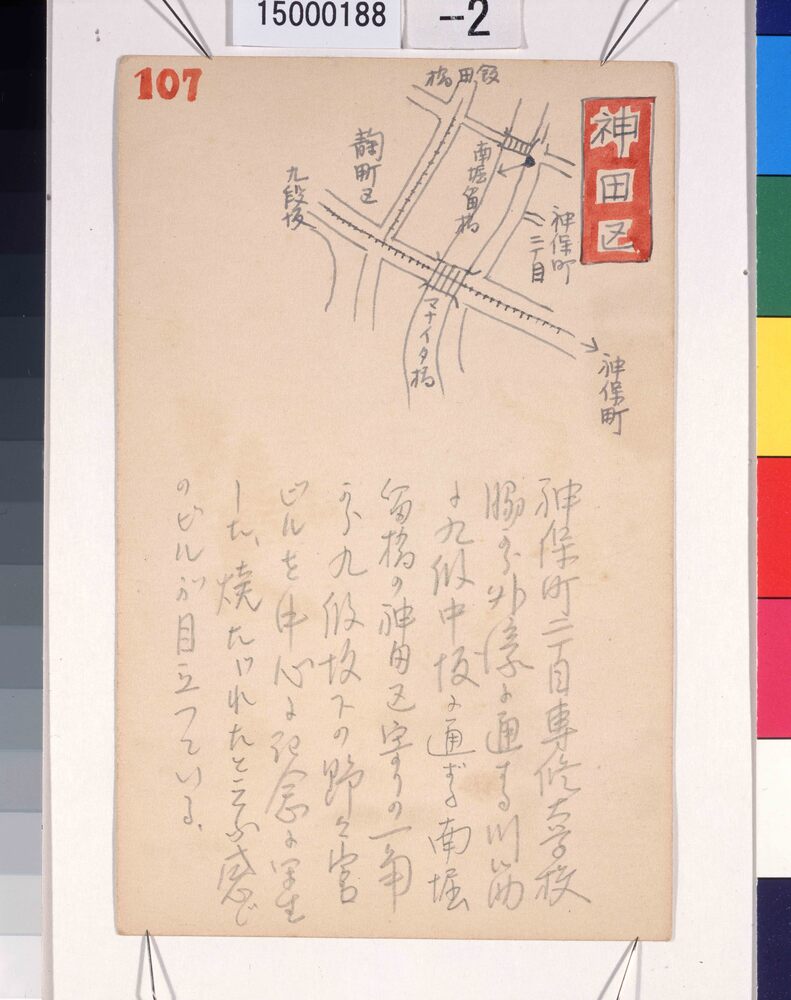 15000188
-2
107
神田区
飯田橋
麹町区
九段坂
南堀留橋
神保町
二丁目
マナイタ橋
神保町
神保町二丁目専修大学校
脇から外濠に通する川筋
に九段中坂に通ずる南堀
留橋の神田区寄りの一角
から九段坂下の野々宮
ビルを中心に記念に写生
した、焼たゞれたと云ふ感じ
のビルが目立つている。